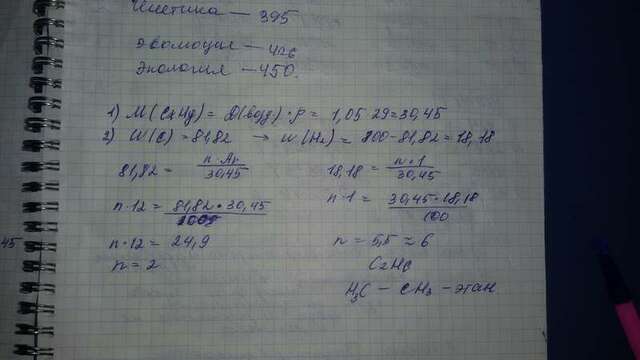 Генетика — 395
Эволюция — 426
Экология — 450.
1) M (CxHy) = D(возд) · ρ = 1,05 · 29 = 30,45
2) W (C) = 81,82 → w (H2) = 100 - 81,82 = 18,18
81,82 = n · Ar / 30,45 18,18 = n · 1 / 30,45
n · 12 = 81,82 · 30,45 / 100 n · 1 = 30,45 · 18,18 / 100
n · 12 = 24,9 n = 5,5 ≈ 6
45
n = 2 C2H6
H3C — CH3 — этан